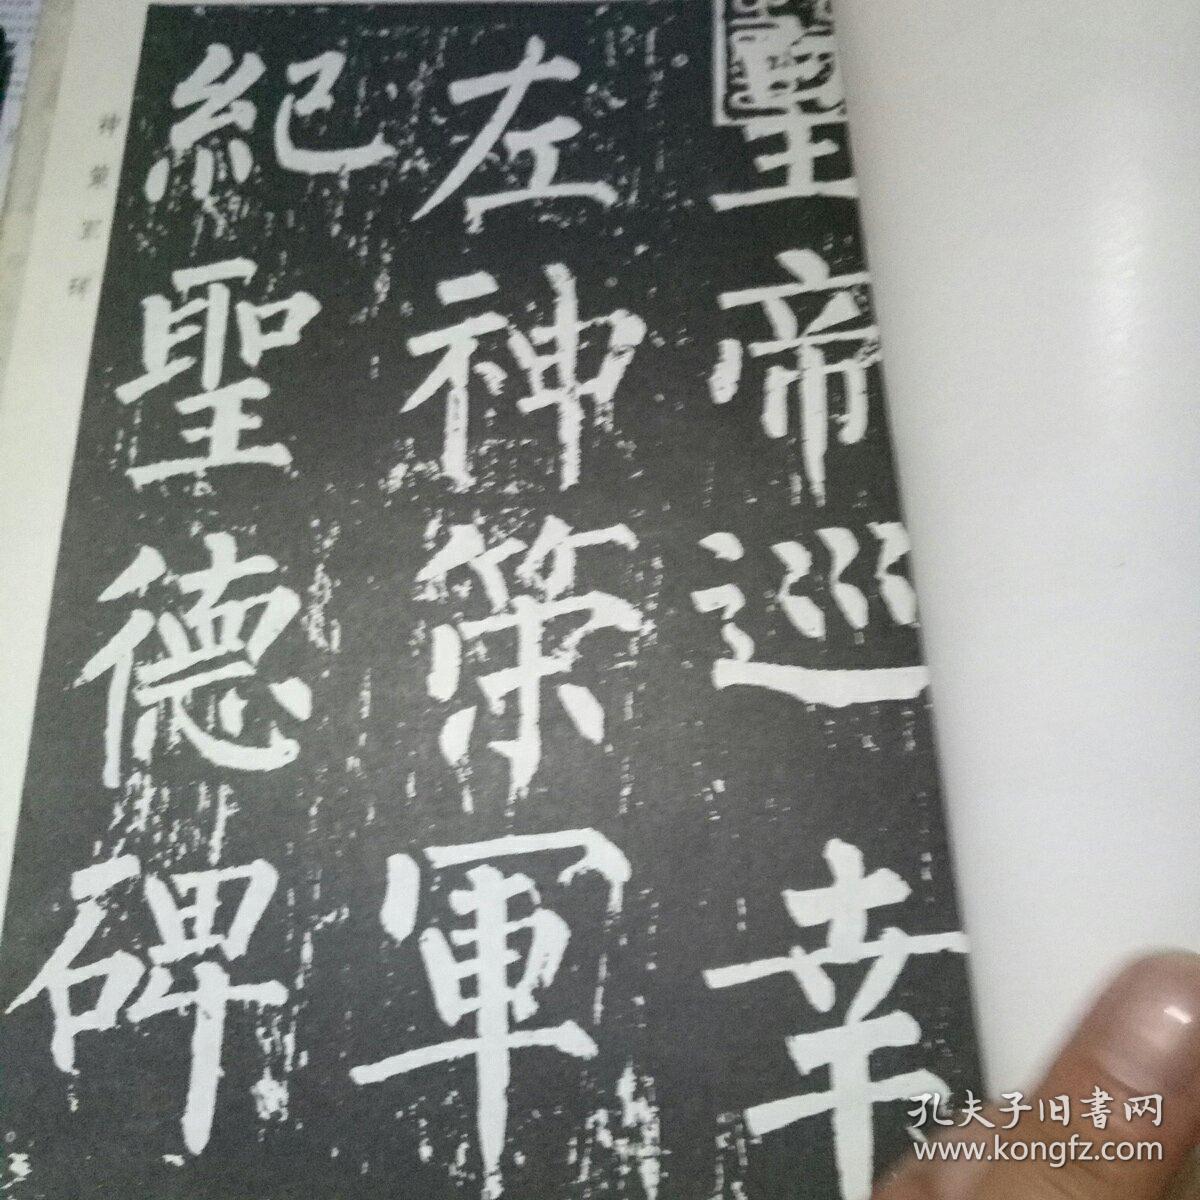 皇帝巡幸
左神策軍
紀聖德碑
神策軍碑
孔夫子旧書网
www.kongfz.com